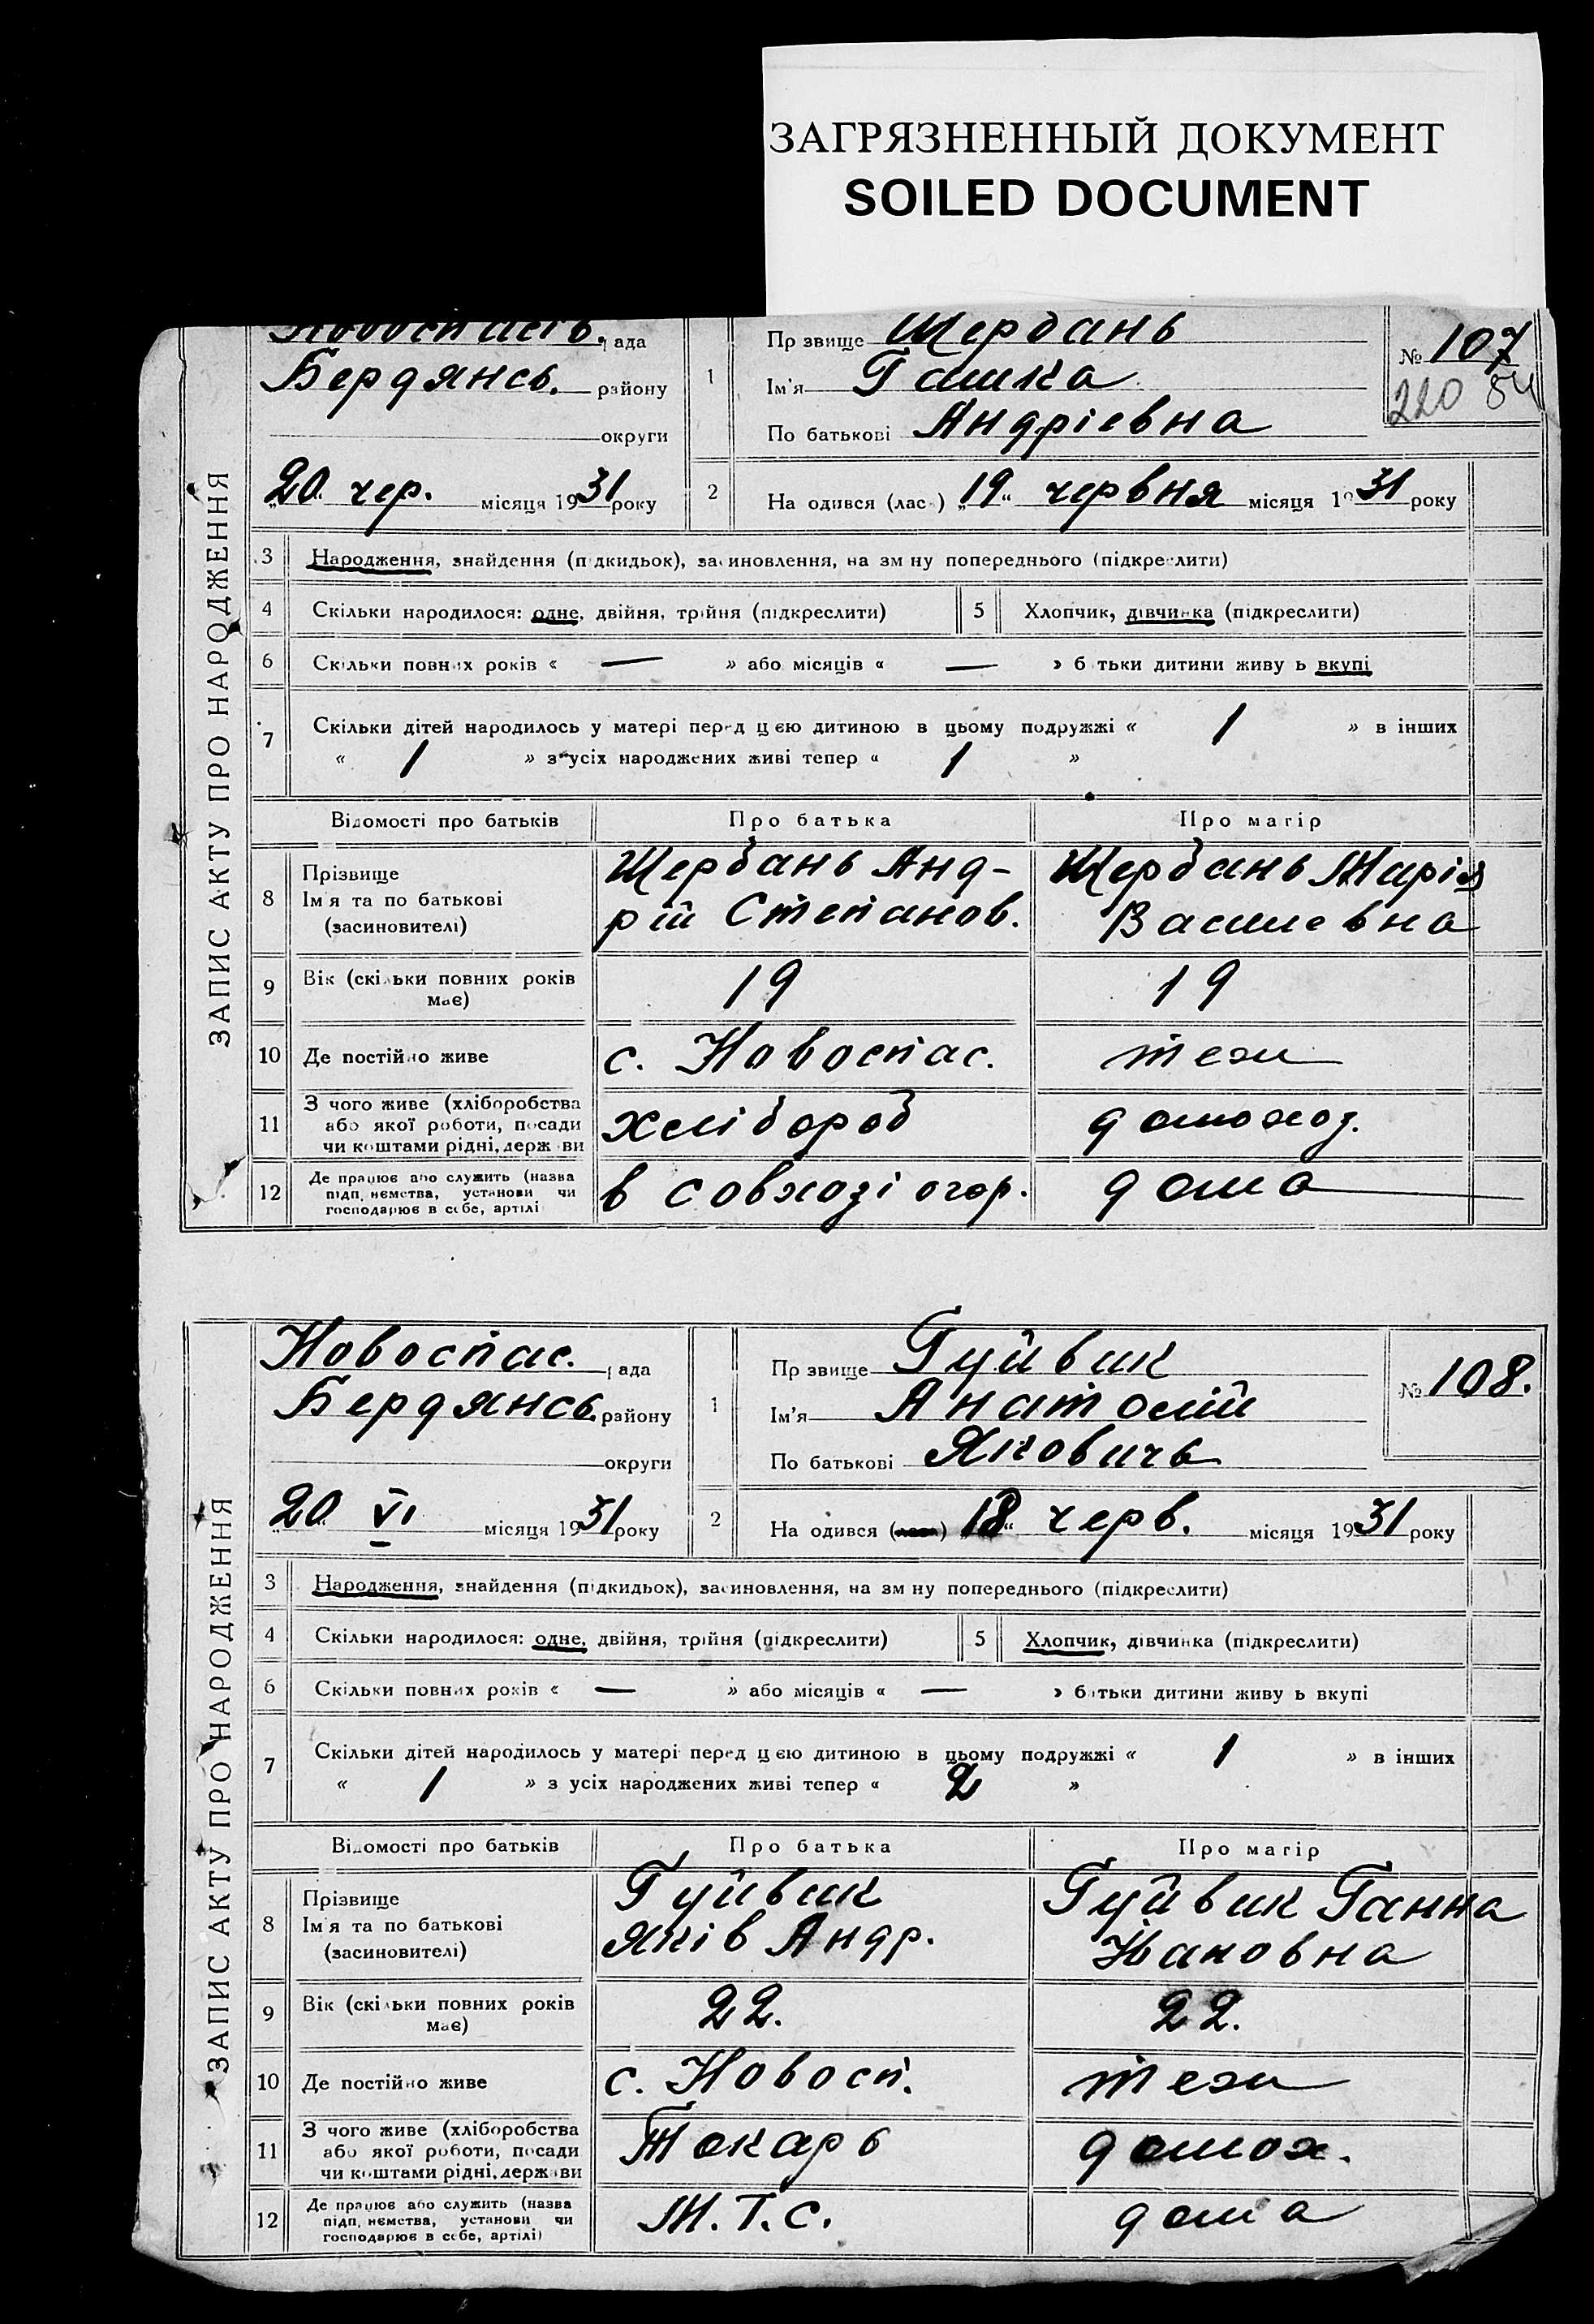 ЗАГРЯЗНЕННЫЙ ДОКУМЕНТ
SOILED DOCUMENT
ЗАПИС АКТУ ПРО НАРОДЖЕННЯ
рада
Бердянсь. району
округи
„20“ чер. місяця 1931 року
1
Пр звище Щербань
Ім'я Гашка
По батькові Андріевна
№ 107
220
2
На одився (лас ) „19“ червня місяця 1931 року
3 Народження, знайдення (підкидьок), засиновлення, на зм ну попереднього (підкреслити)
4 Скільки народилося: одне, двійня, трійня (підкреслити) 5 Хлопчик, дівчинка (підкреслити)
6 Скільки повних років « — » або місяців « — » б тьки дитини живу ь вкупі
7 Скільки дітей народилось у матері перед цією дитиною в цьому подружжі « 1 » в інших
« 1 » з усіх народжених живі тепер « 1 »
Відомості про батьків Про батька Про матір
8 Прізвище
Ім'я та по батькові
(засиновителі)
Щербань Анд-
рій Степанов.
Щербань Марія
Василевна
9 Вік (скільки повних років
має)
19 19
10 Де постійно живе с. Новоспас. теж
11 З чого живе (хліборобства
або якої роботи, посади
чи коштами рідні, держави
хлібороб домохоз.
12 Де працює або служить (назва
підп. немства, установи чи
господарює в себе, артілі
в совхозі огор. дома
ЗАПИС АКТУ ПРО НАРОДЖЕННЯ
Новоспас. рада
Бердянсь. району
округи
„20“ VI місяця 1931 року
1
Пр звище Гуйвик
Ім'я Анатолій
По батькові Яковичь
№ 108.
2
На одився ( ) „18“ черв. місяця 1931 року
3 Народження, знайдення (підкидьок), засиновлення, на зм ну попереднього (підкреслити)
4 Скільки народилося: одне, двійня, трійня (підкреслити) 5 Хлопчик, дівчинка (підкреслити)
6 Скільки повних років « — » або місяців « — » батьки дитини живу ь вкупі
7 Скільки дітей народилось у матері перед цією дитиною в цьому подружжі « 1 » в інших
« 1 » з усіх народжених живі тепер « 2 »
Відомості про батьків Про батька Про матір
8 Прізвище
Ім'я та по батькові
(засиновителі)
Гуйвик
Яків Андр.
Гуйвик Ганна
Івановна
9 Вік (скільки повних років
має)
22. 22.
10 Де постійно живе с. Новосп. теж
11 З чого живе (хліборобства
або якої роботи, посади
чи коштами рідні, держави
Токарь домох.
12 Де працює або служить (назва
підп. немства, установи чи
господарює в себе, артілі)
М.Т.С. дома